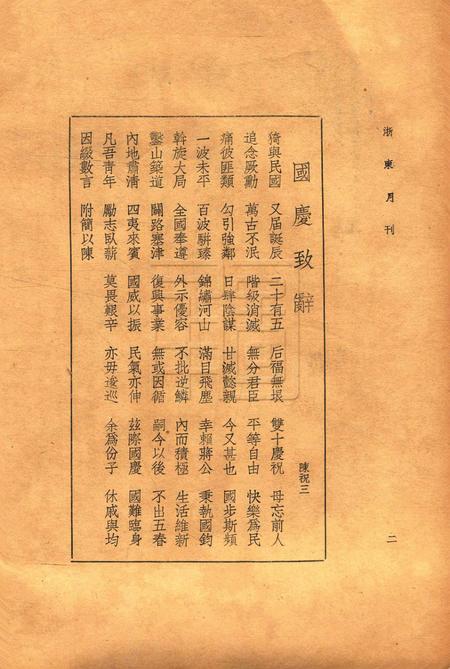 浙東月刊
二
國慶致辭
陳祝三
猗與民國 又屆誕辰 二十有五 后福無垠 雙十慶祝 毋忘前人
追念厥勳 萬古不泯 階級消滅 無分君臣 平等自由 快樂爲民
痛彼匪類 勾引強鄰 日肆陰謀 甘滅懿親 今又甚也 國步斯頻
一波未平 百波騈臻 錦繡河山 滿目飛塵 幸賴蔣公 秉執國鈞
斡旋大局 全國奉遵 外示優容 不批逆鱗 內而積極 生活維新
鑿山築道 闢路塞津 復興事業 無或因循 嗣今以後 不出五春
內地肅清 四夷來賓 國威以振 民氣亦伸 茲際國慶 國難臨身
凡吾靑年 勵志臥薪 莫畏艱辛 亦毋逡巡 余爲份子 休戚與均
因綴數言 附簡以陳